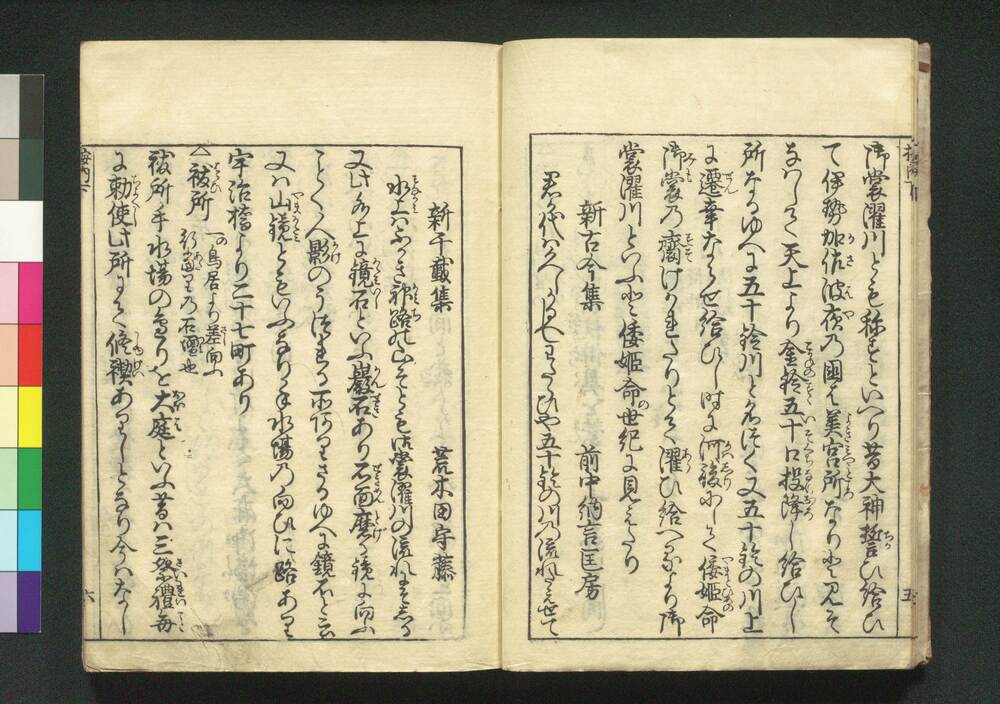 御裳濯川とも称すといへり昔大神誓ひ給ひ
て伊勢加佐波夜の国は美宮所なりと見そ
なはして天上より金鈴五十口投降し給ひし
所なるゆへに五十鈴川と名づく又五十鈴の川上
に遷幸ならせ給ひし時に河後にして倭姫命
御裳の裔けがれたりとて濯ひ給へるより御
裳濯川といふと倭姫命世紀に見えたり
新古今集 前中納言匡房
君が代は久しかるべしわたらひや五十鈴の川の流れたえせで
新千載集 荒木田守藤
水上はふかき神路の山そとも御裳濯川の流れにそしる
又此水上に鏡石といふ巌石あり石面磨く鏡に向ふ
ごとく人影のうつれる所ありさるゆへに鏡石と云
又は山鏡ともいふなり手水場の向ひに路あり
宇治橋より二十七町あり
△祓所 一鳥居より差向ふ
行当りの石壇也
祓所手水場のあたりを大庭といふ昔は三祭礼毎
に勅使此所にて修禊ありしとなり今はなし
五
六